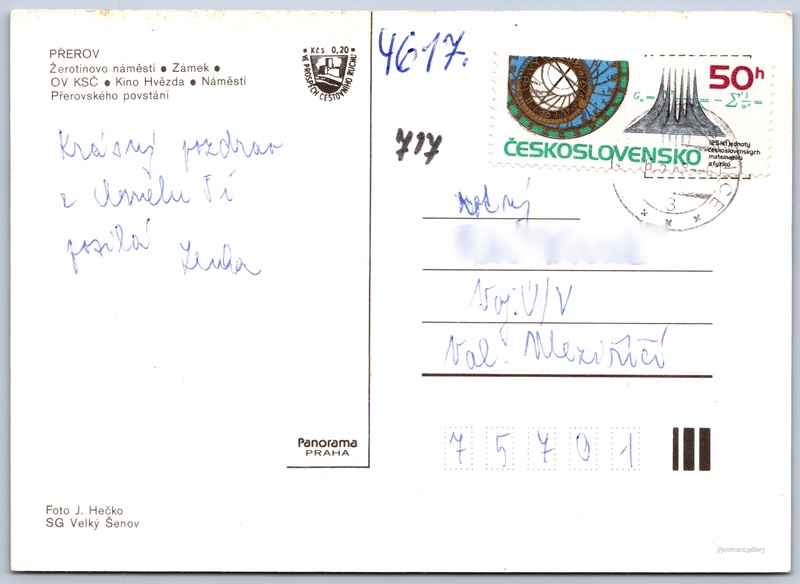 PŘEROV
Žerotínovo náměstí • Zámek •
OV KSČ • Kino Hvězda • Náměstí
Přerovského povstání
• Kčs 0,20 •
VE PROSPĚCH CESTOVNÍHO RUCHU
4617.
717
50h
ČESKOSLOVENSKO
125 let jednoty
československých
matematiků
a fyziků
3
Krásný pozdrav
z Tí
posílá Lenka
Voj. Ú/V
Val. Meziříčí
75701
Panorama
PRAHA
Foto J. Hečko
SG Velký Šenov
@postcard.gallery